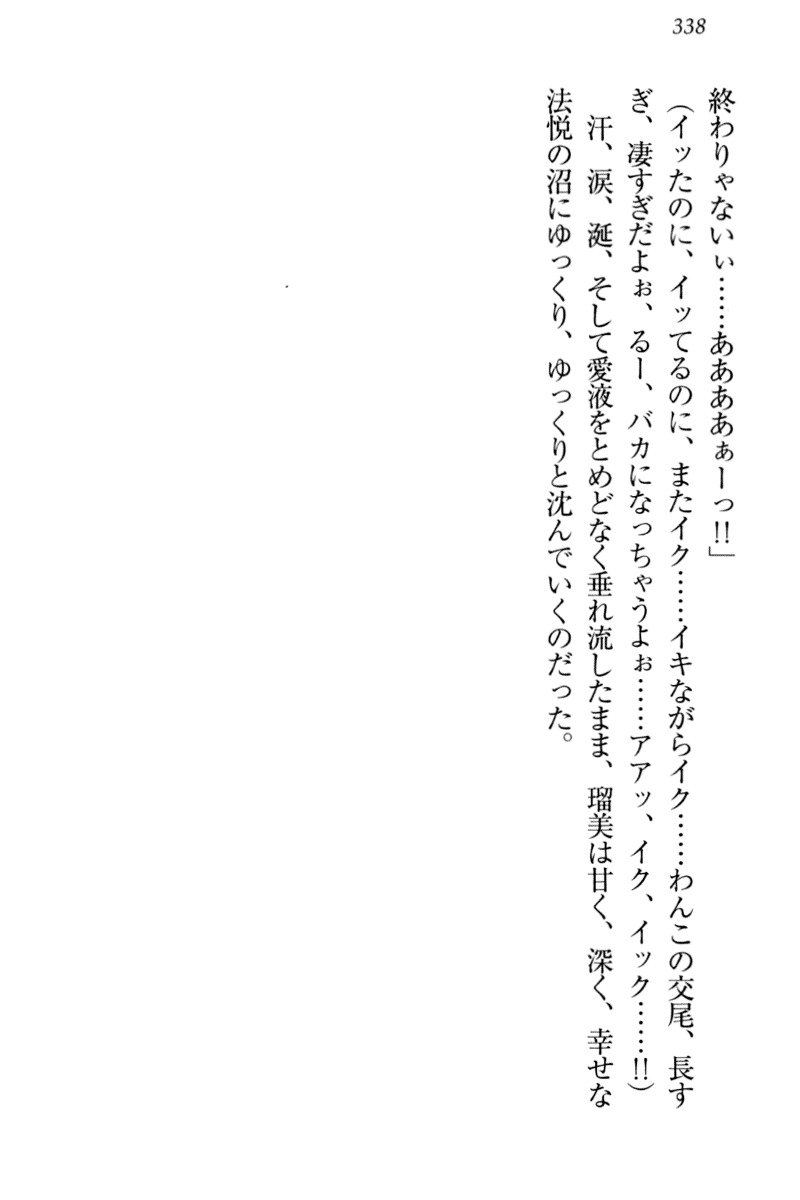 338
終わりゃないぃ……ああああぁーっ!!」
（イッたのに、イッてるのに、またイク……イキながらイク……わんこの交尾、長す
ぎ、凄すぎだよぉ、るー、バカになっちゃうよぉ……アアッ、イク、イック……!!）
汗、涙、涎、そして愛液をとめどなく垂れ流したまま、瑠美は甘く、深く、幸せな
法悦の沼にゆっくり、ゆっくりと沈んでいくのだった。